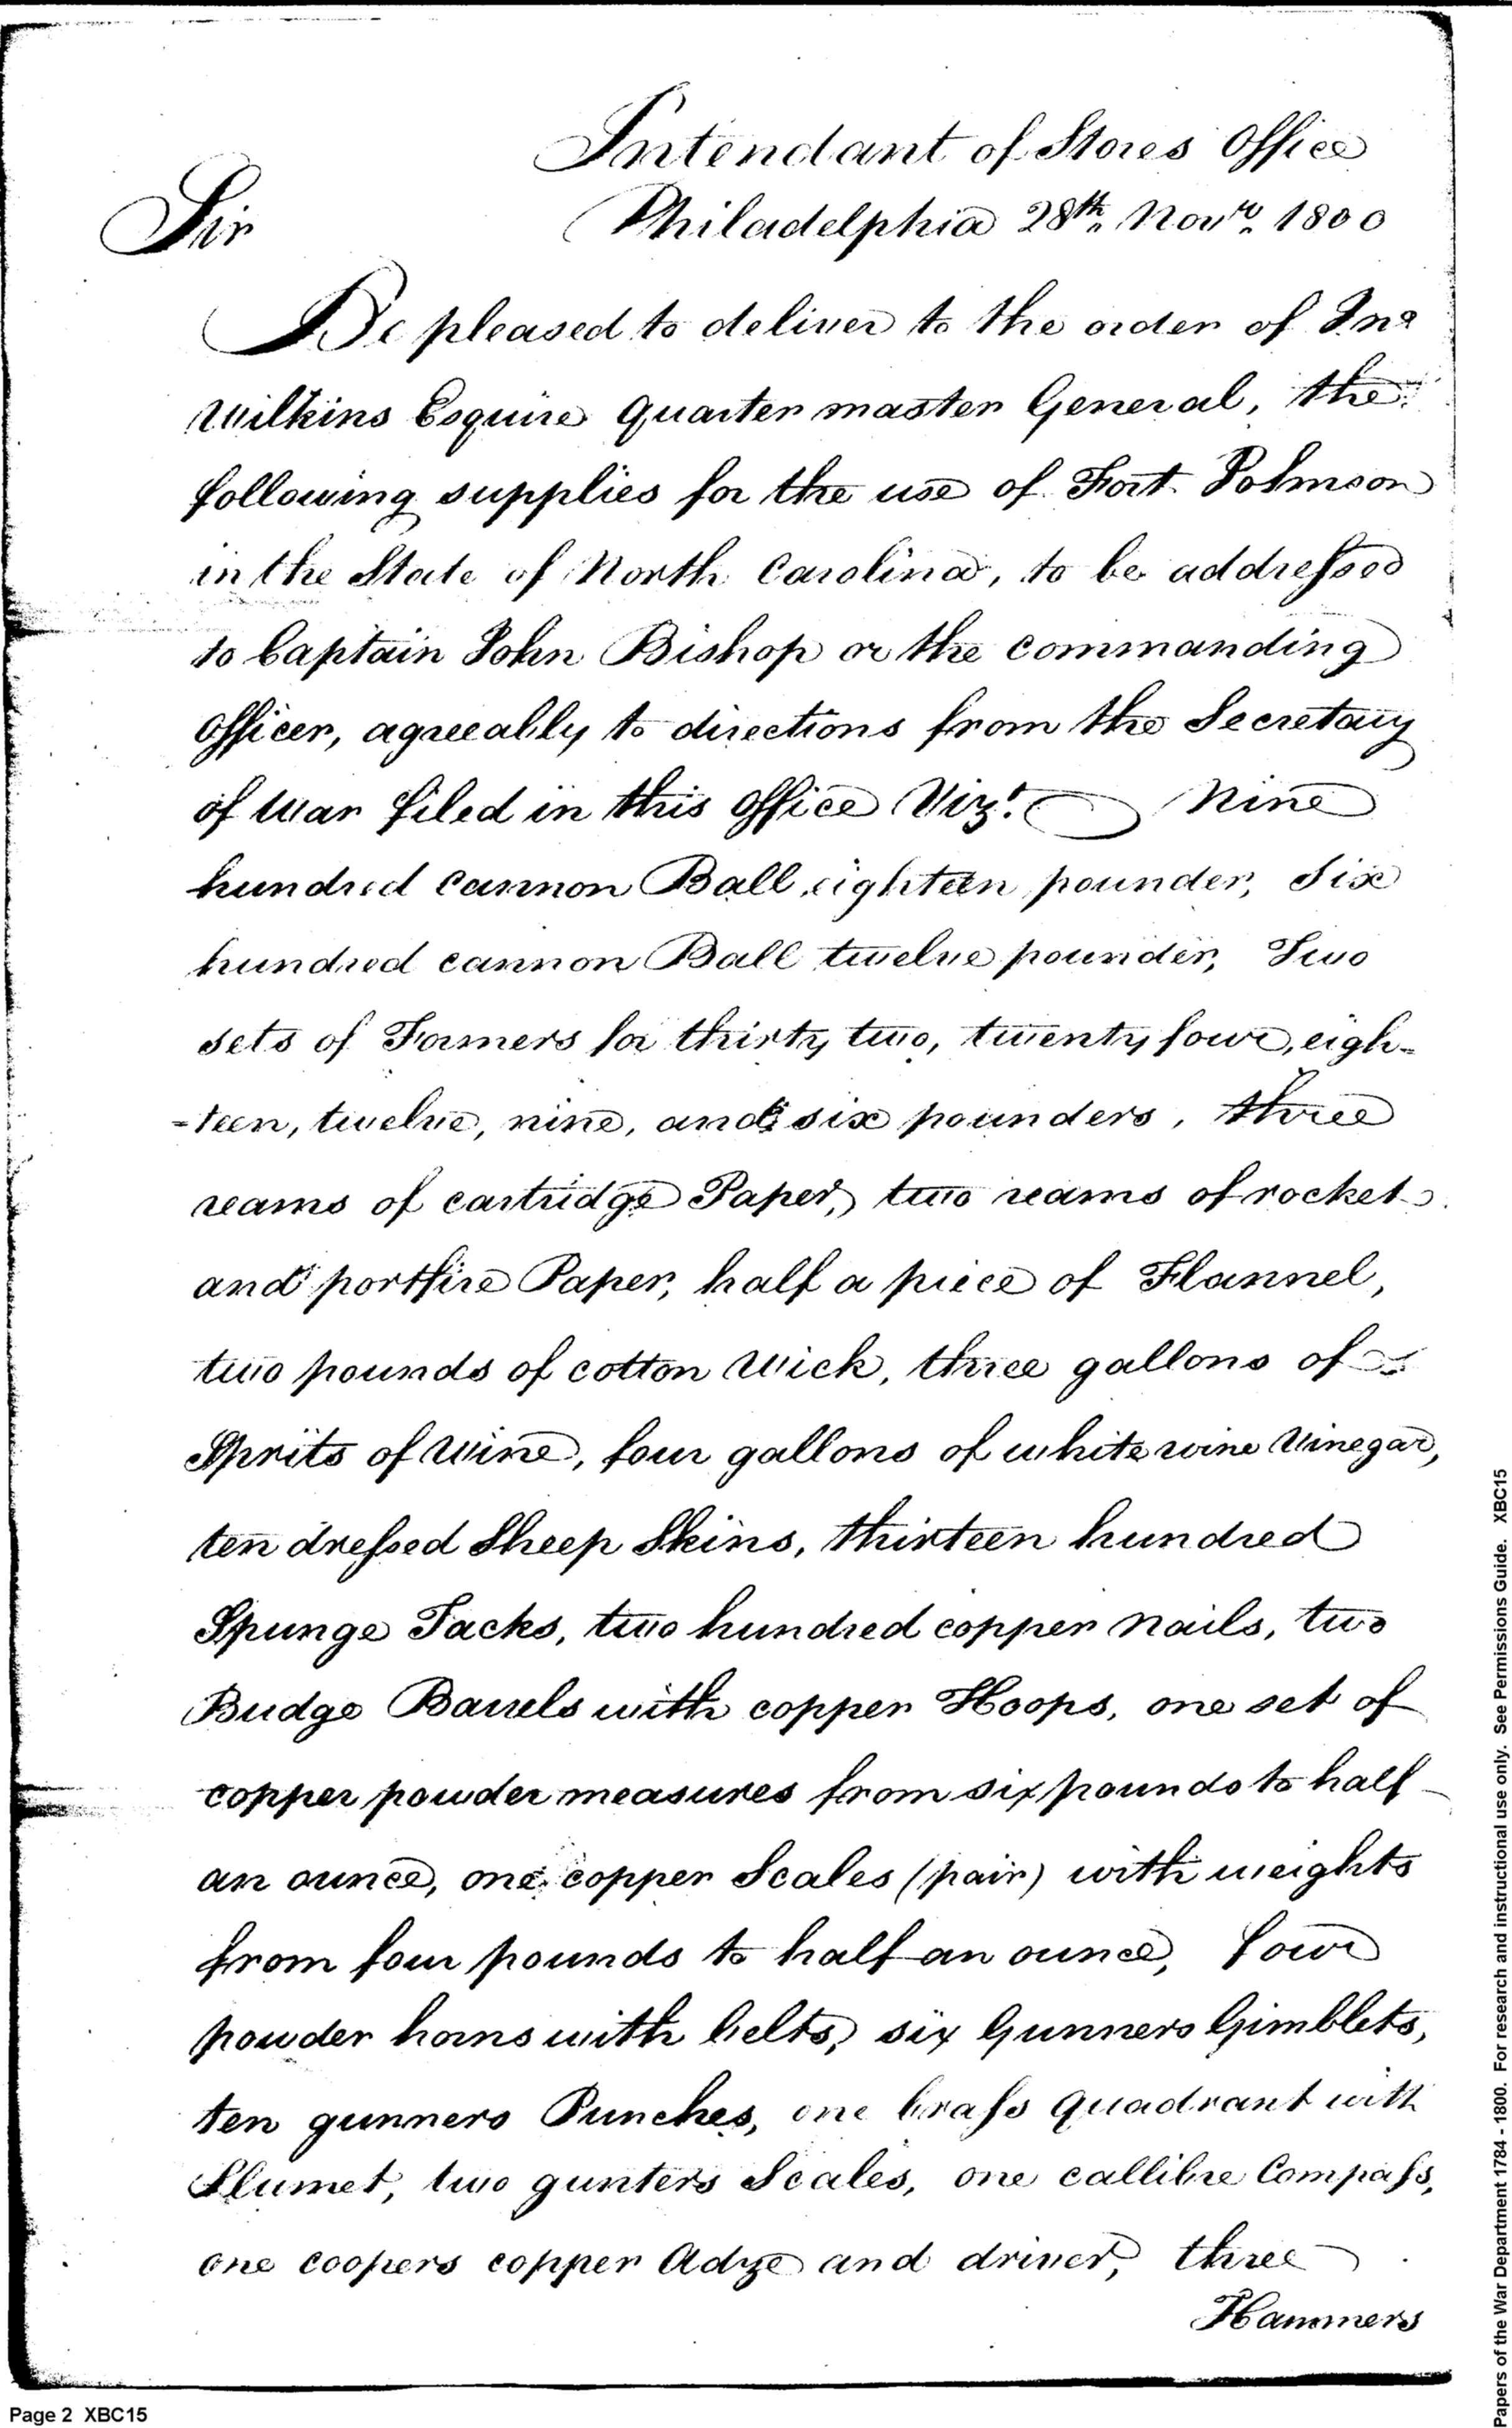 Intendant of Stores Office
Philadelphia 28th. Novr. 1800
Sir
Be pleased to deliver to the order of Jno
Wilkins Esquire Quarter master General, the
following supplies for the use of Fort Johnson
in the State of North Carolina, to be addressed
to Captain John Bishop or the commanding
Officer, agreeably to directions from the Secretary
of War filed in this Office Vizt. Nine
hundred cannon Ball eighteen pounder, Six
hundred cannon Ball twelve pounder, Two
sets of Formers for thirty two, twenty four, eigh-
-teen, twelve, nine, and six pounders, three
reams of cartridge Paper, two reams of rocket
and portfire Paper, half a piece of Flannel,
two pounds of cotton Wick, three gallons of
Sprits of Wine, four gallons of white wine Vinegar,
ten dressed Sheep Skins, thirteen hundred
Spunge Tacks, two hundred copper Nails, two
Budge Barrels with copper Hoops, one set of
copper powder measures from six pounds to half
an ounce, one copper Scales (pair) with weights
from four pounds to half an ounce, four
powder horns with belts, six Gunners Gimblets,
ten gunners Punches, one brass Quadrant with
Plumet, two gunters Scales, one callibre Compass,
one coopers copper Adze and driver, three
Hammers
Page 2 XBC15
Papers of the War Department 1784 - 1800. For research and instructional use only. See Permissions Guide. XBC15